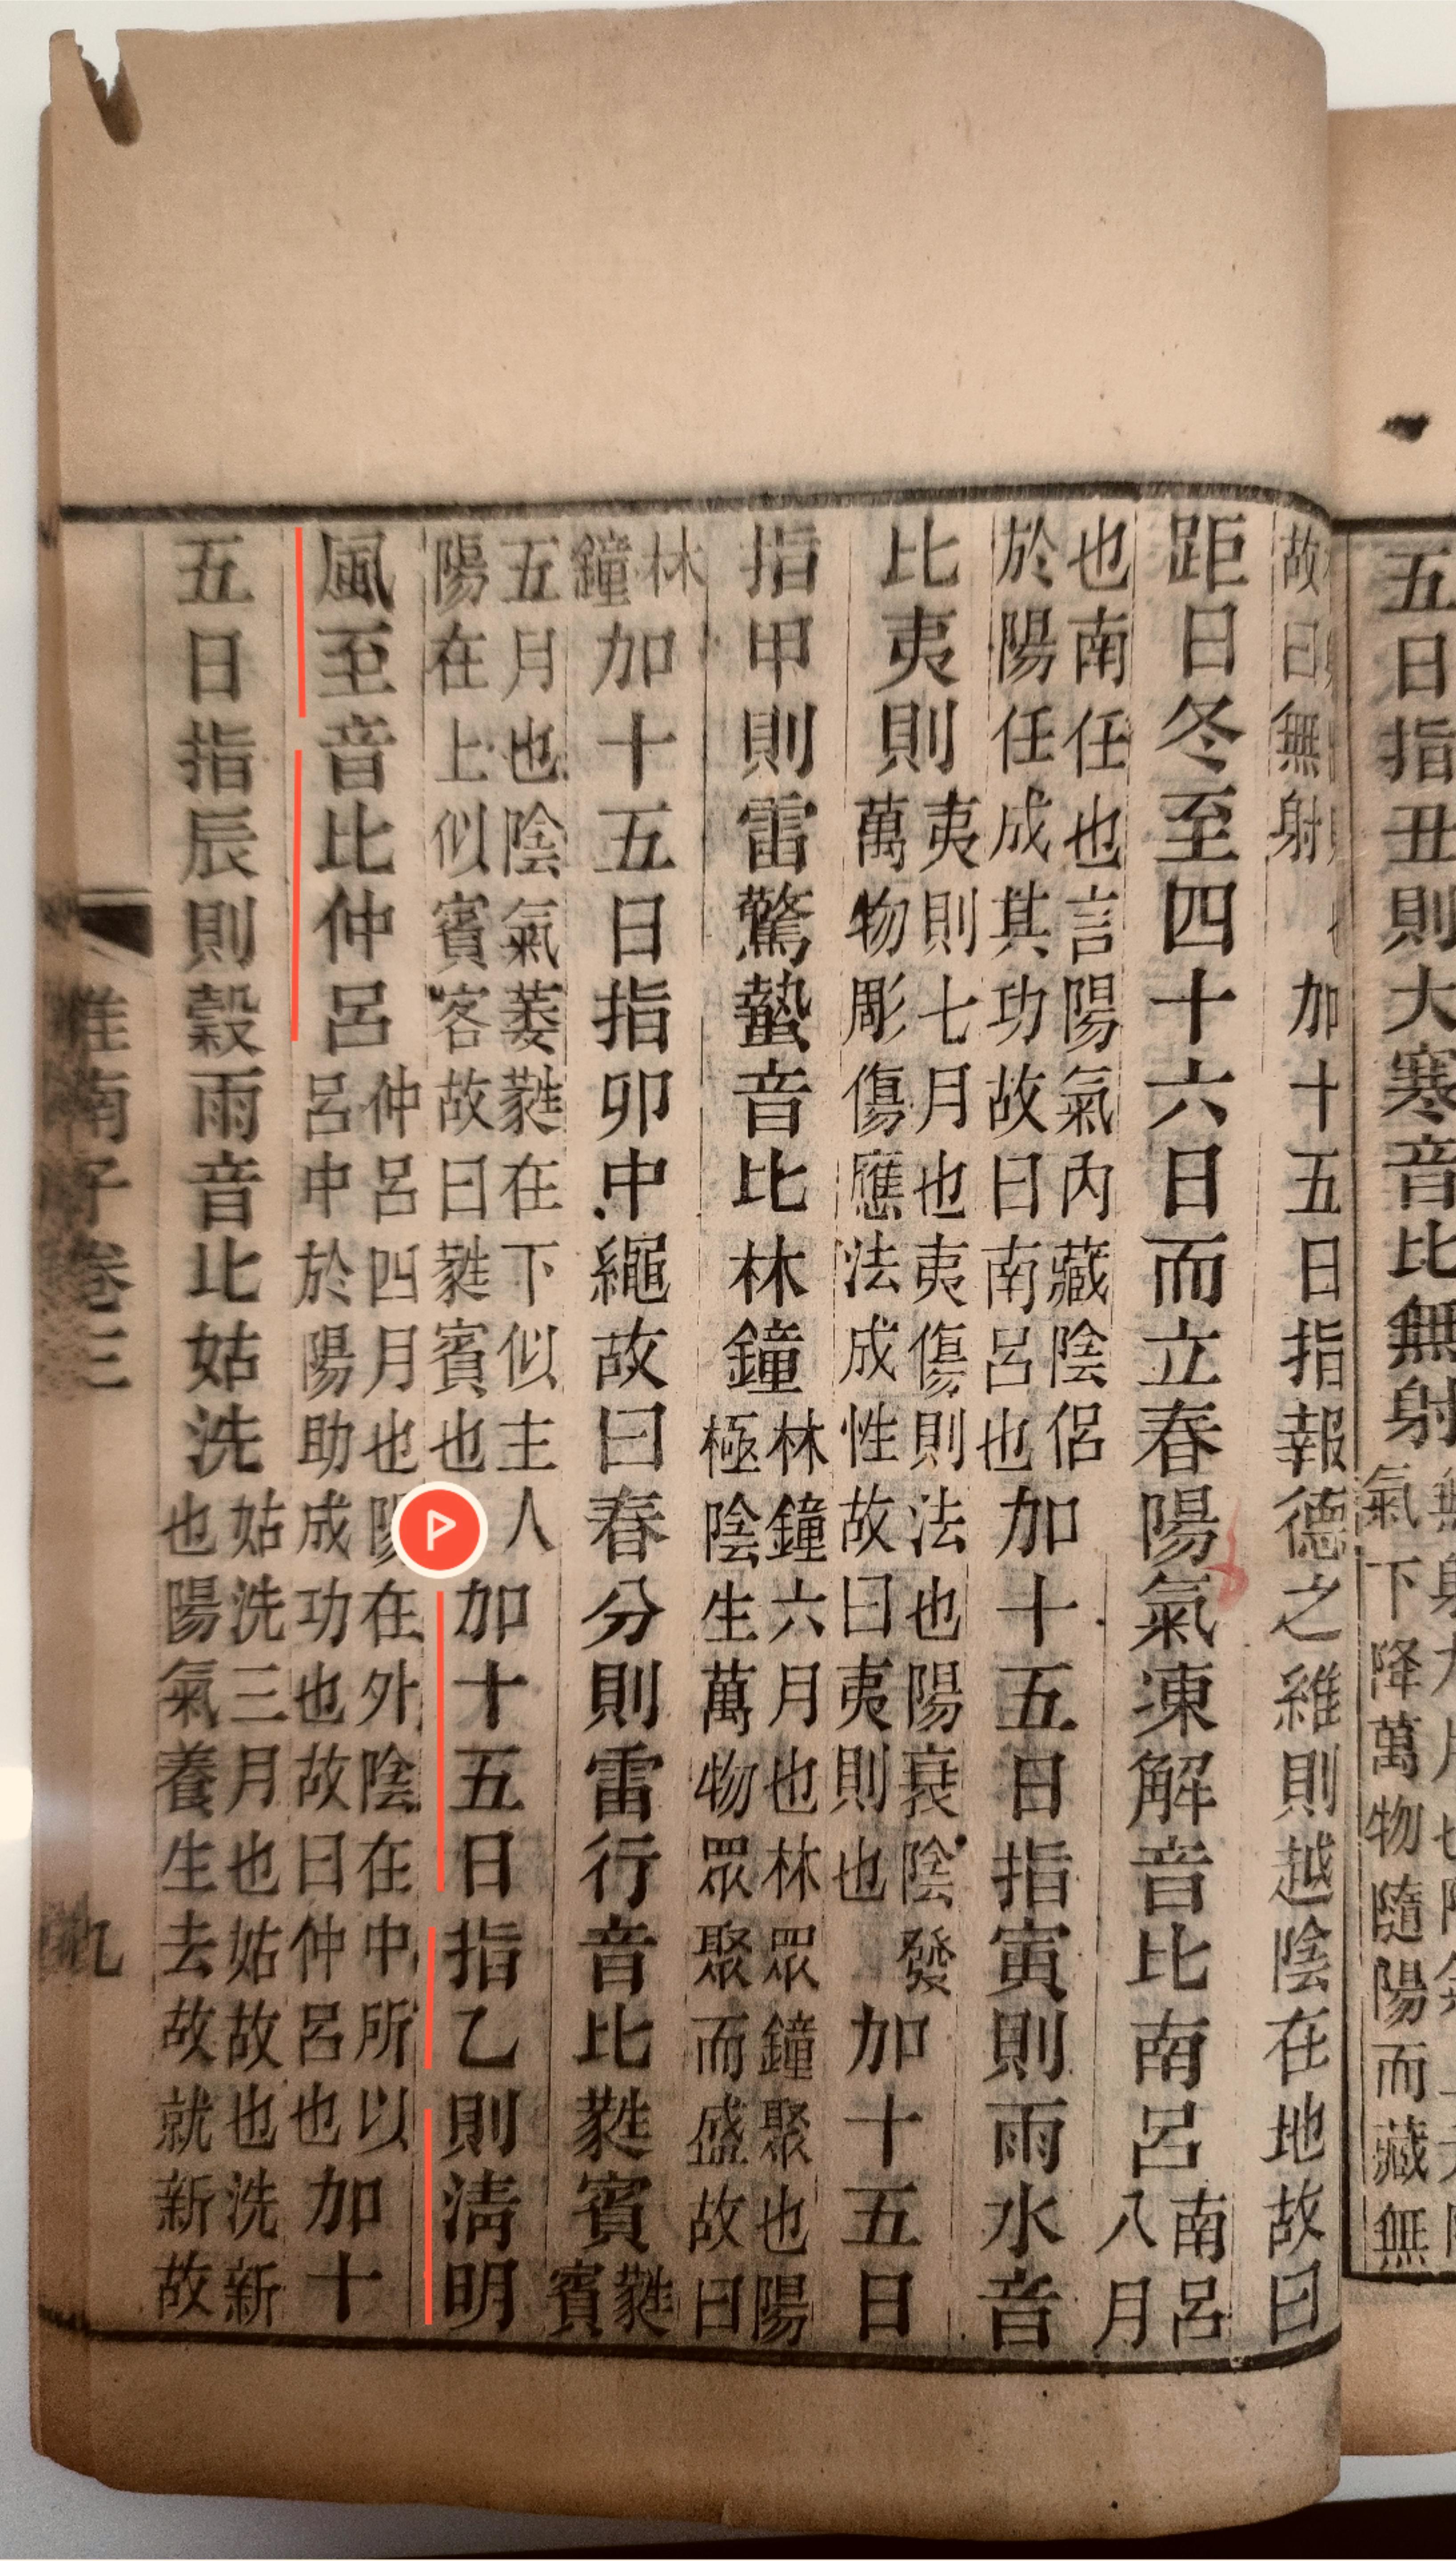 五日指丑則大寒音比無射
氣下降萬物隨陽而藏無
故曰無射加十五日指報德之維則越陰在地故曰
距日冬至四十六日而立春陽氣凍解音比南呂南呂八月
也南任也言陽氣內藏陰侶於陽任成其功故曰南呂也加十五日指寅則雨水音
比夷則夷則七月也夷傷則法也陽衰陰發萬物彫傷應法成性故曰夷則也加十五日
指甲則雷驚蟄音比林鐘林鐘六月也林眾鐘聚也陽極陰生萬物眾聚而盛故曰
林鐘加十五日指卯中繩故曰春分則雷行音比蕤賓蕤賓
五月也陰氣萎蕤在下似主人陽在上似賓客故曰蕤賓也加十五日指乙則淸明
風至音比仲呂仲呂四月也陽在外陰在中所以呂中於陽助成功也故曰仲呂也加十
五日指辰則穀雨音比姑洗姑洗三月也姑故也洗新也陽氣養生去故就新故
淮南子卷三 九